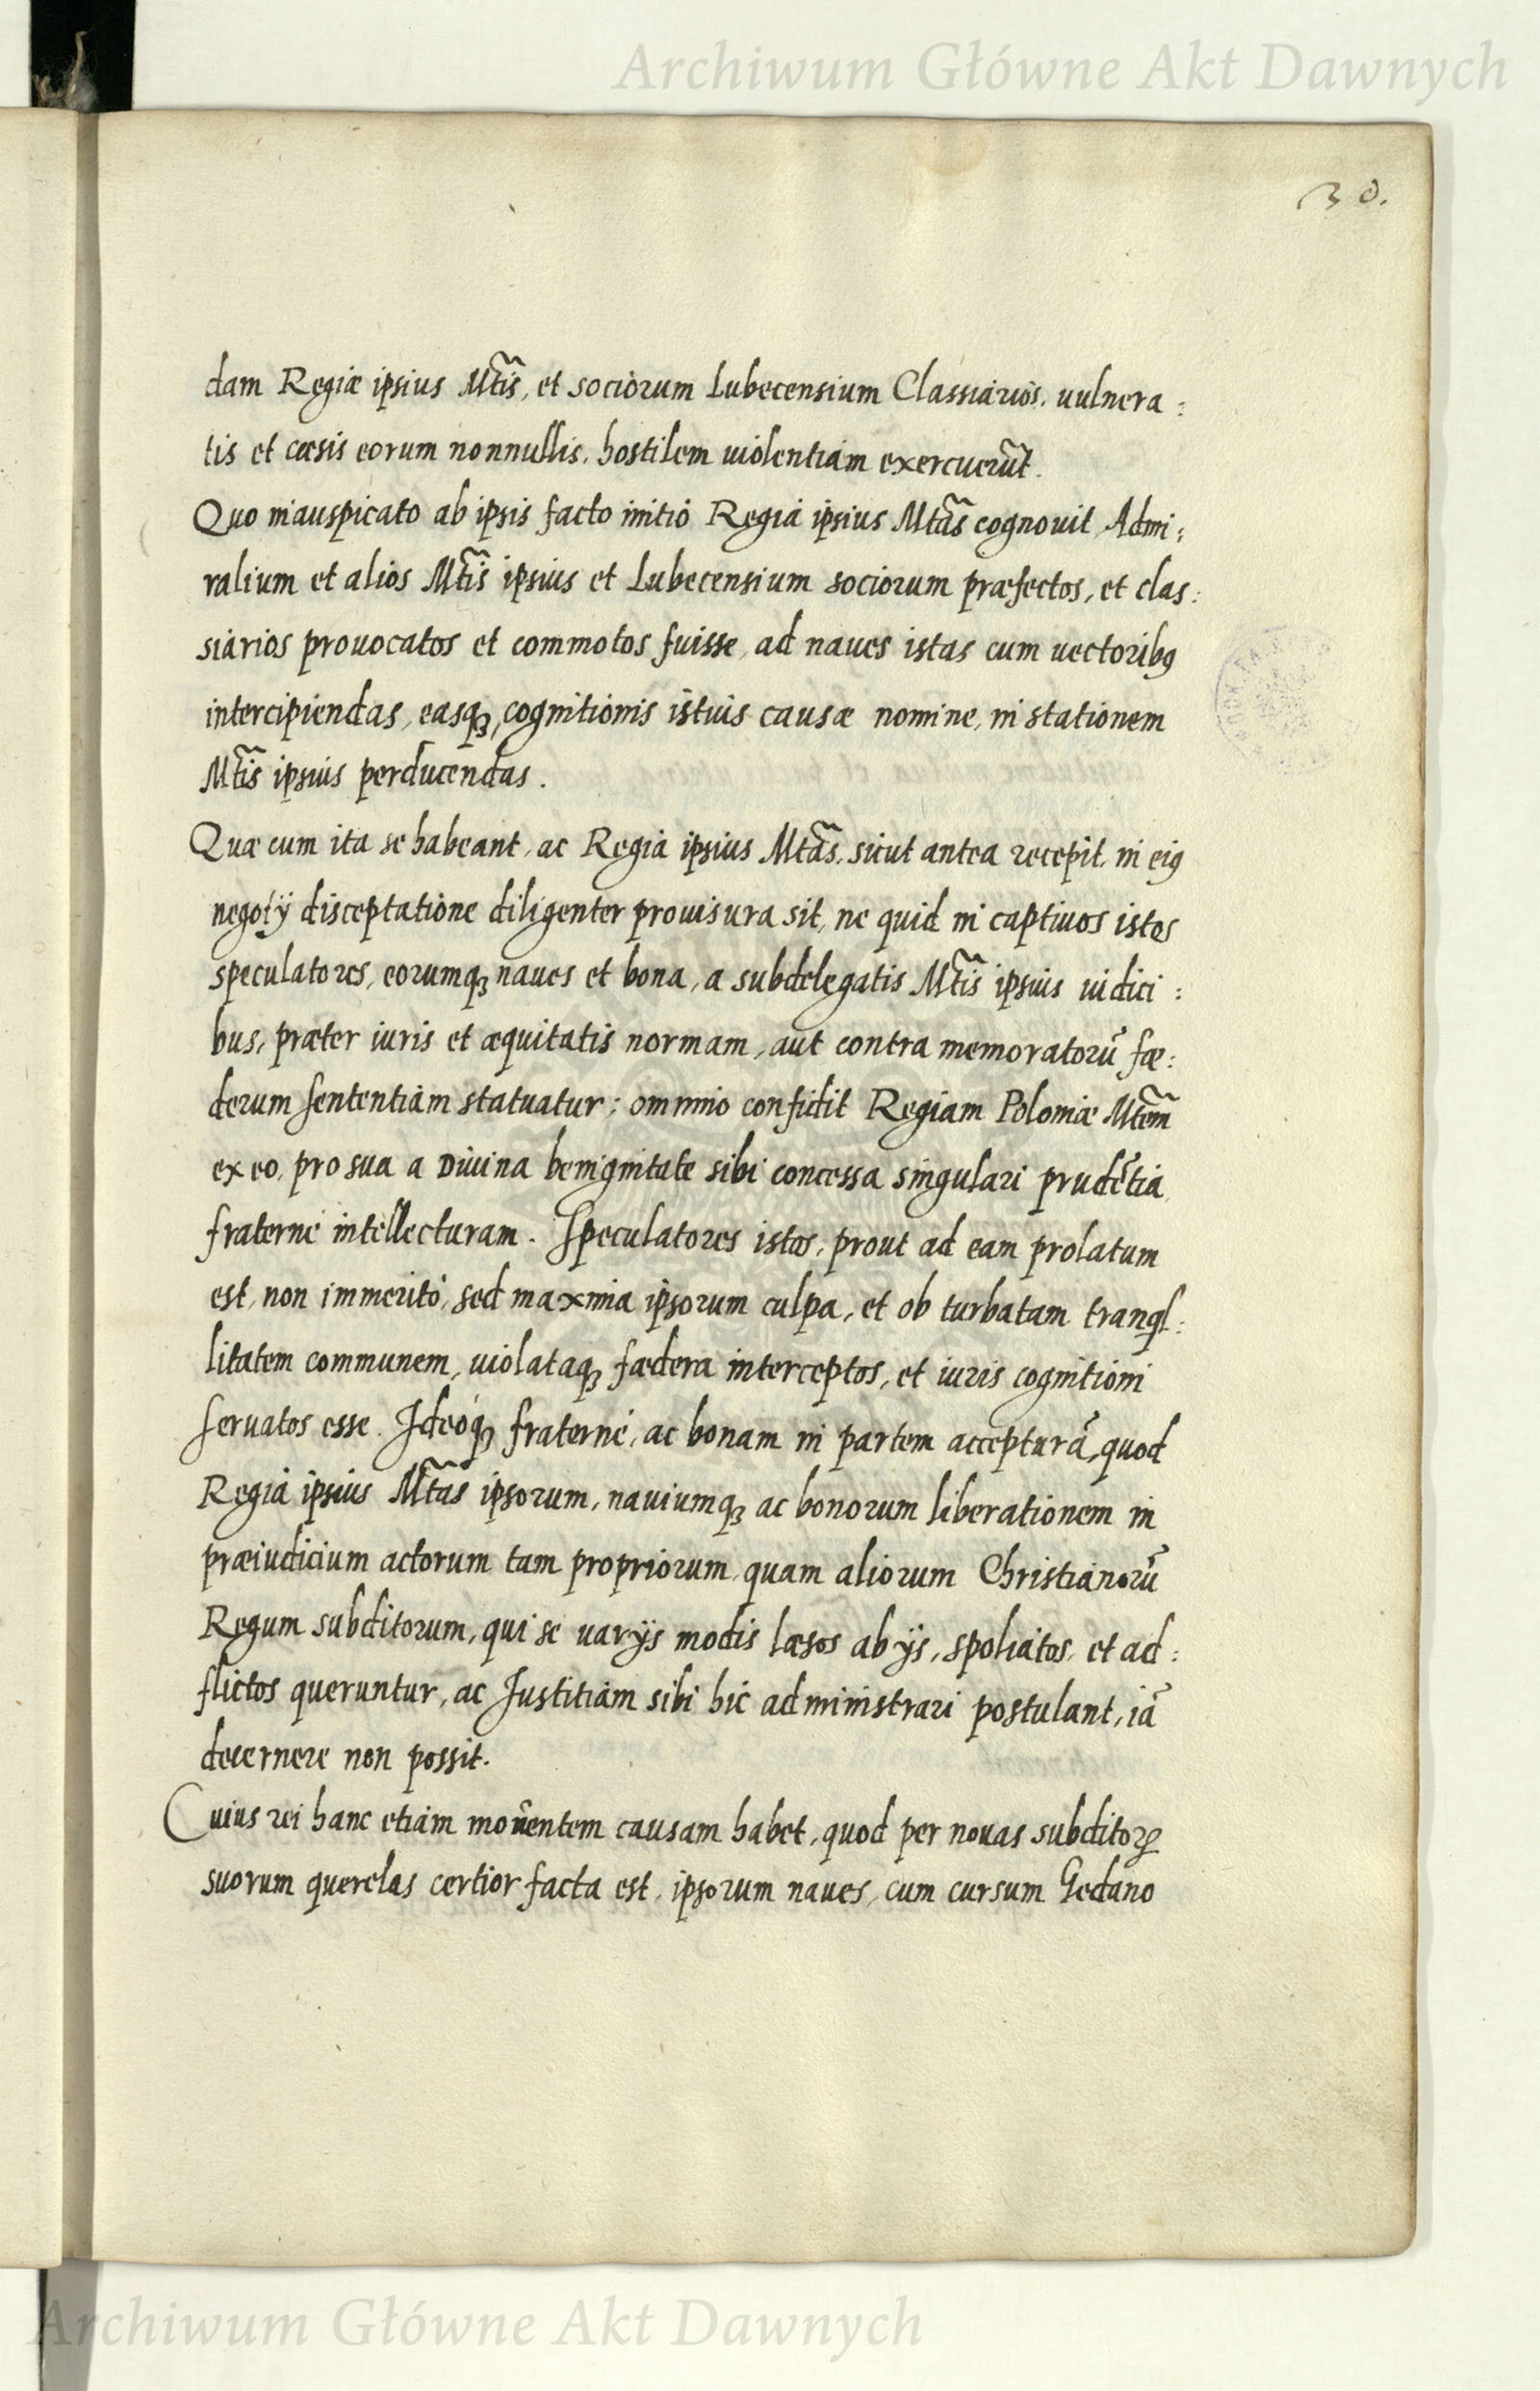 Archiwum Główne Akt Dawnych
30.
dam Regiæ ipsius Mtis, et sociorum Lubecensium Classiarios, uulnera:
tis et cæsis eorum nonnullis, hostilem uiolentiam exercuerũt.
Quo inauspicato ab ipsis facto initio Regia ipsius Mtas cognouit Admi:
ralium et alios Mtis ipsius et Lubecensium sociorum præfectos, et clas:
siarios prouocatos et commotos fuisse, ad naues istas cum uectoribꝰ
intercipiendas, easqꝫ, cognitionis istius causæ nomine, in stationem
Mtis ipsius perducendas.
Quæ cum ita se habeant, ac Regia ipsius Mtas, sicut antea recepit, in eiꝰ
negotÿ disceptatione diligenter prouisura sit, ne quid in captiuos istos
speculatores, eorumqꝫ naues et bona, a subdelegatis Mtis ipsius iudici:
bus, præter iuris et æquitatis normam, aut contra memoratorũ fæ:
derum sententiam statuatur: omnino confidit Regiam Poloniæ Mtem
ex eo, pro sua a Diuina benignitate sibi concessa singulari prudẽtia,
fraterne intellecturam. Speculatores istos, prout ad eam prolatum
est, non immerito, sed maxima ipsorum culpa, et ob turbatam tranql:
litatem communem, uiolataqꝫ fædera interceptos, et iuris cognitioni
seruatos esse. Ideoqꝫ fraterne, ac bonam in partem accepturã, quod
Regia ipsius Mtas ipsorum, nauiumqꝫ ac bonorum liberationem in
præiudicium actorum tam propriorum, quam aliorum Christianorũ
Regum subditorum, qui se uarÿs modis læsos ab ÿs, spoliatos, et ad:
flictos queruntur, ac Iustitiam sibi hic administrari postulant, iã
decernere non possit.
Cuius rei hanc etiam mouentem causam habet, quod per nouas subditoꝝ
suorum querelas certior facta est, ipsorum naues, cum cursum Gedano
Archiwum Główne Akt Dawnych